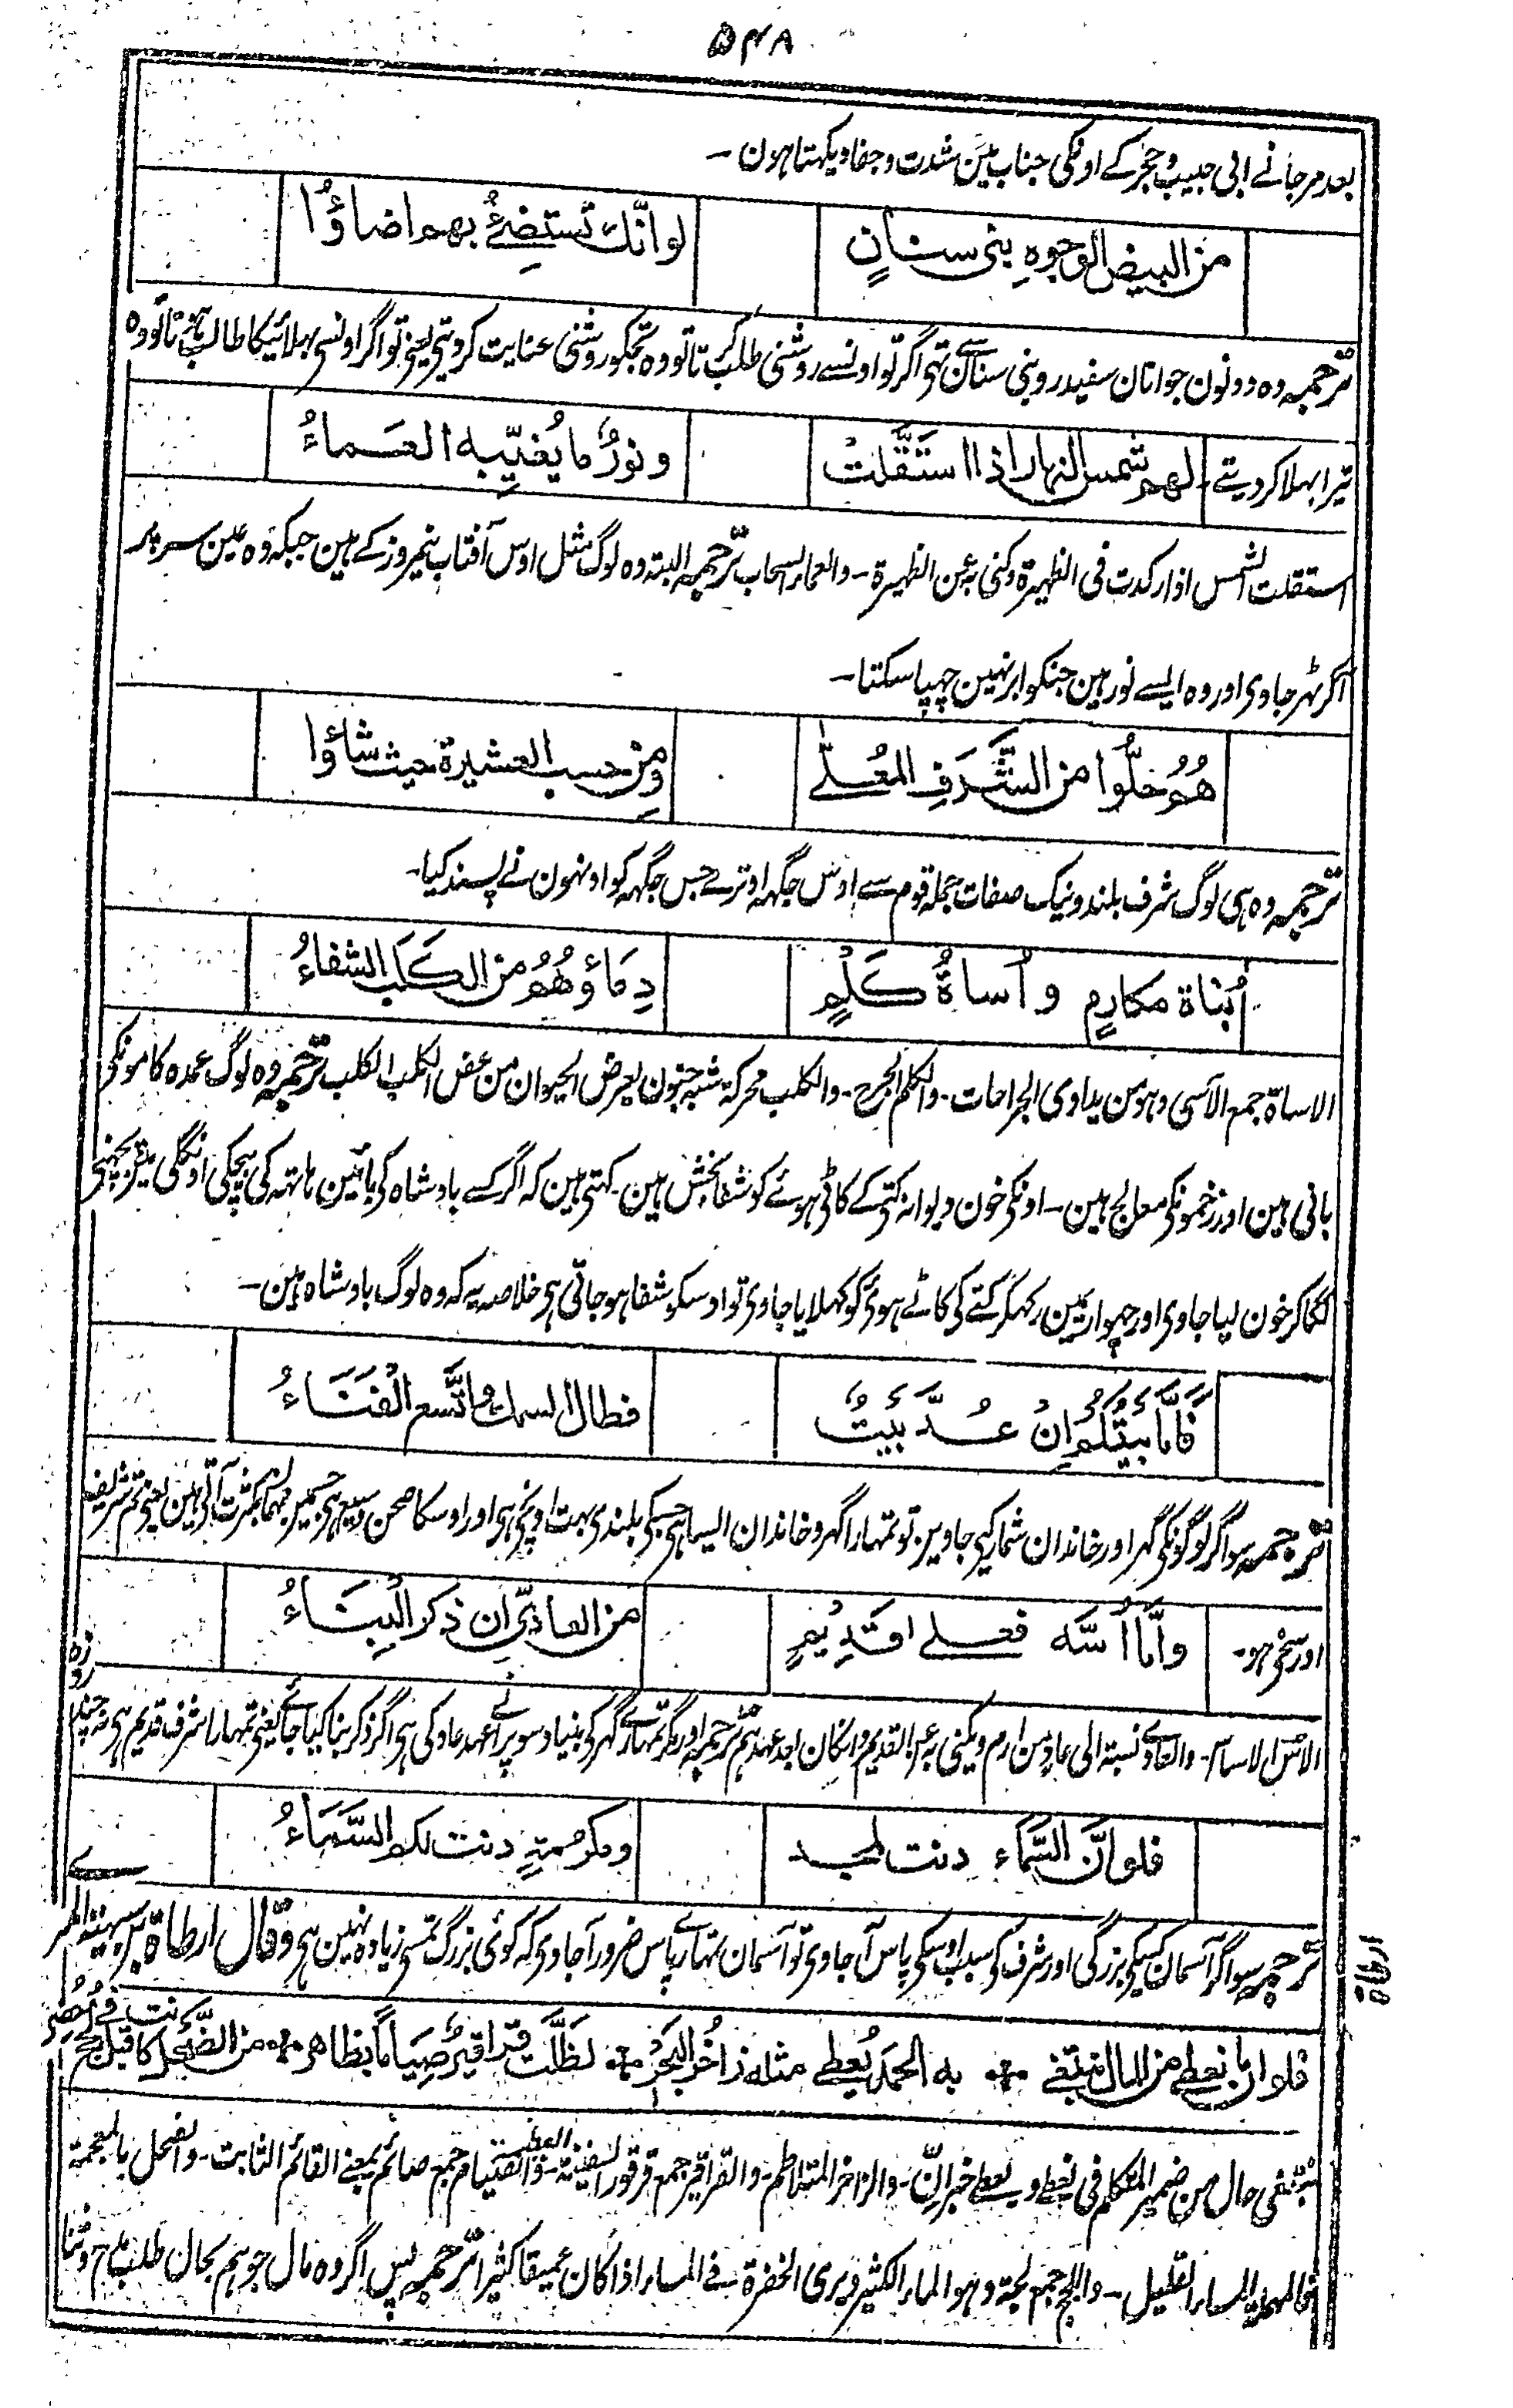 ۵۴۸
بعد مرجانے ابی حبیب وحجر کے اونکی جناب مین شدت وجفا دیکہتا ہون ۔
من البیض الوجوہِ بنی سنانٍ لو انّك تستضیٔ بهم اضاؤُا
ترجمہ وہ دونون جوانان سفید رو بنی سنان سے تہی اگر تو اونسے روشنی طلب کرتا تو وہ تجکو روشنی عنایت کردیتی یعنی تو اگر اونسی بہلائیکا طالب ہوتا تو وہ
تیرا بہلا کردیتے ۔ لهم شمس النهار اذا استقلّت ونورٌ ما یُغیّبه العماءُ
استقلت الشمس اذا رکدت فی الظہیرۃ وکنی بہ عن الظہیرۃ ۔ والعماء السحاب ترجمہ البتہ وہ لوگ مثل اوس آفتاب نیمروز کے ہین جبکہ وہ عین سر پر
آکر ٹہر جاوی اور وہ ایسے نور ہین جنکو ابر نہین چہپا سکتا ۔
هُمُ حلّوا من الشَّرَفِ المُعلّی ومِن حسب العشیرة حیث شاؤا
ترجمہ وہ ہی لوگ شرف بلند ونیک صفات جملہ قوم سے اوس جگہہ اوترے جس جگہہ کو اونہون نے پسند کیا ۔
بُناة مکارمٍ واُساةُ کَلْمٍ دِماؤُهُمُ من الکَلَب الشفاءُ
الاساۃ جمع الآسی وہو من یداوی الجراحات ۔ والکلم الجرح ۔ والکلب محرکۃ شبہ جنون یعرض الحیوان من عض الکلب الکلب ترجمہ وہ لوگ عمدہ کامونکی
بانی ہین اور زخمونکی معالج ہین ۔ اونکی خون دیوانہ کتی کے کاٹی ہوئے کو شفا بخش ہین ۔ کہتی ہین کہ اگر کسے بادشاہ کی بائین ہاتہہ کی بیچکی اونگلی مین پچہنی
لگاکر خون لیا جاوی اور چہوارے مین رکہکر کتے کی کاٹے ہوئی کو کہلایا جاوی تو اوسکو شفا ہو جاتی ہی خلاصہ یہ کہ وہ لوگ بادشاہ ہین ۔
فَاَمّا بَیْتُکُم اِنْ عُدَّ بَیْتٌ فطال السمك واتّسع الفَنَاءُ
ترجمہ سو اگر لوگونکی گہر اور خاندان شمار کیے جاوین تو تمہارا گہر وخاندان ایسا ہی جسکی بلندی بہت اونچی ہی اور اوسکا صحن وسیع ہی جسمین مہمان بکثرت آتی ہین یعنی تم شریف
اور سخی ہو ۔ واَمّا اُسُّه فعلی قَدِیْمٍ من العادیّ اِن ذکر البِناءُ
الاس الاساس ۔ والعادے نسبۃ الی عاد بن ارم ویکنی بہ عن القدیم وان کان بعد عہدہم ترجمہ اور مگر تمہارے گہر کی بنیاد سو پرانے عہد عاد کی ہی اگر ذکر بنا کیا جاے یعنی تمہارا شرف قدیم ہی نہ چند روزہ
فلو انَّ السَّماء دنت لمجد ومکرُمةٍ دنت لکم السَّماءُ
ترجمہ سو اگر آسمان کسیکی بزرگی اور شرف کی سبب اوسکی پاس آ جاوی تو آسمان تمہارے پاس ضرور آ جاوی کہ کوئی بزرگ تمسی زیادہ نہین ہی وقال ارطاۃ بن سہیۃ المری
فلو ان ما نعطی من المال نبتغی به الحمدَ یُعطی مثله زاخرُ البَحْرِ لظلّت قراقیرٌ صِیَاماً بظاهر من الضَّحل کانت قبل فی لُججٍ خُضرِ
نبتغی حال من ضمیر المتکلم فی نعطے ویعطے خبر انّ ۔ والزاخر المتلاطم ۔ والقراقیر جمع قرقور السفینۃ العظیمۃ ۔ والصیام جمع صائم بمعنے القائم الثابت ۔ والضحل بالمعجمۃ
فالمہملۃ الماء القلیل ۔ واللجج جمع لجۃ وہو الماء الکثیر ویری الخضرۃ فے الماء اذا کان عمیقا کثیرا ترجمہ پس اگر وہ مال جو ہم بحال طلب مدح وثنا